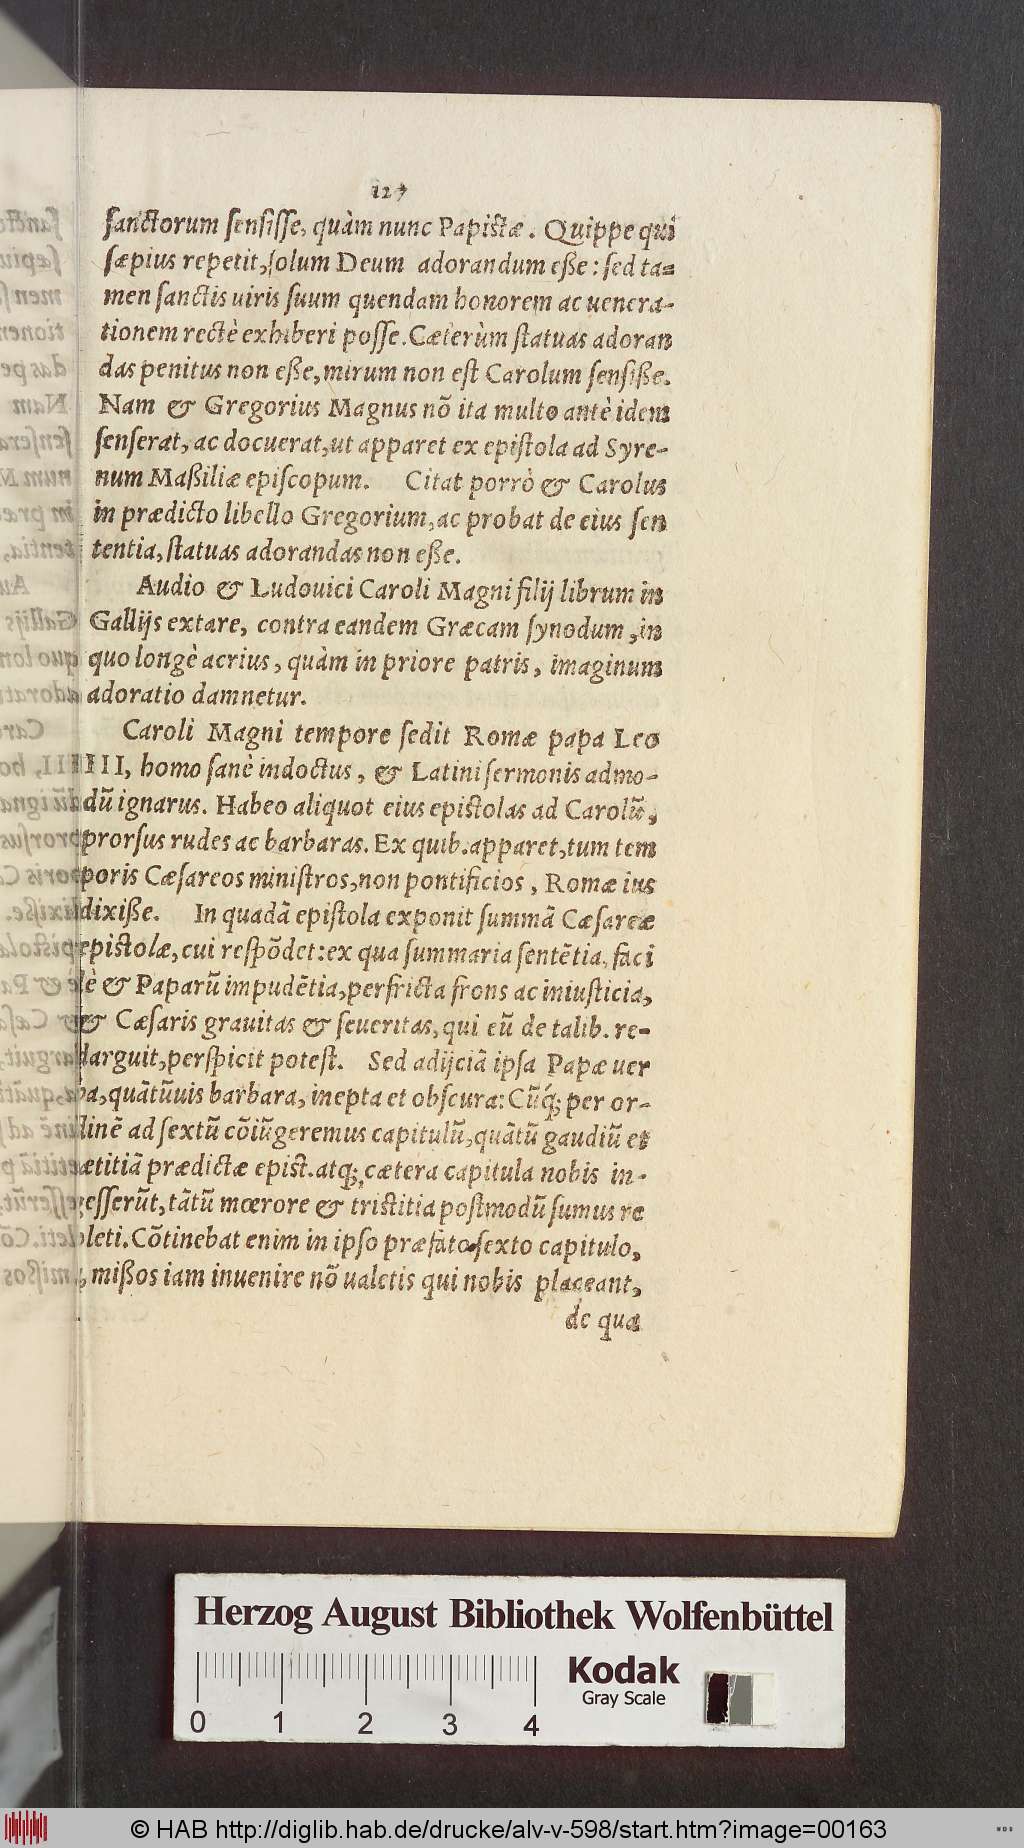 127
sanctorum sensisse, quàm nunc Papistæ. Quippe qui
sæpius repetit, solum Deum adorandum eße: sed ta=
men sanctis uiris suum quendam honorem ac uenera-
tionem rectè exhiberi posse. Cæterùm statuas adoran
das penitus non eße, mirum non est Carolum sensiße.
Nam & Gregorius Magnus nõ ita multo antè idem
senserat, ac docuerat, ut apparet ex epistola ad Syre-
num Maßiliæ episcopum. Citat porrò & Carolus
in prædicto libello Gregorium, ac probat de eius sen
tentia, statuas adorandas non eße.
Audio & Ludouici Caroli Magni filij librum in
Gallijs extare, contra eandem Græcam synodum, in
quo longè acrius, quàm in priore patris, imaginum
adoratio damnetur.
Caroli Magni tempore sedit Romæ papa Leo
IIII, homo sanè indoctus, & Latini sermonis admo-
dũ ignarus. Habeo aliquot eius epistolas ad Carolũ,
prorsus rudes ac barbaras. Ex quib. apparet, tum tem
poris Cæsareos ministros, non pontificios, Romæ ius
dixiße. In quadã epistola exponit summã Cæsareæ
epistolæ, cui respõdet: ex qua summaria sentẽtia, faci
lè & Paparũ impudẽtia, perfricta frons ac iniusticia,
& Cæsaris grauitas & seueritas, qui eũ de talib. re-
darguit, perspicit potest. Sed adijciã ipsa Papæ uer
ba, quãtũuis barbara, inepta et obscura: Cũq́; per or-
dinẽ ad sextũ cõiũgeremus capitulũ, quãtũ gaudiũ et
lætitiã prædictæ epist. atq; cætera capitula nobis in-
gesserũt, tãtũ mœrore & tristitia postmodũ sumus re
pleti. Cõtinebat enim in ipso præfato sexto capitulo,
, mißos iam inuenire nõ ualetis qui nobis placeant,
de qua
Herzog August Bibliothek Wolfenbüttel
Kodak
Gray Scale
0 1 2 3 4
© HAB http://diglib.hab.de/drucke/alv-v-598/start.htm?image=00163